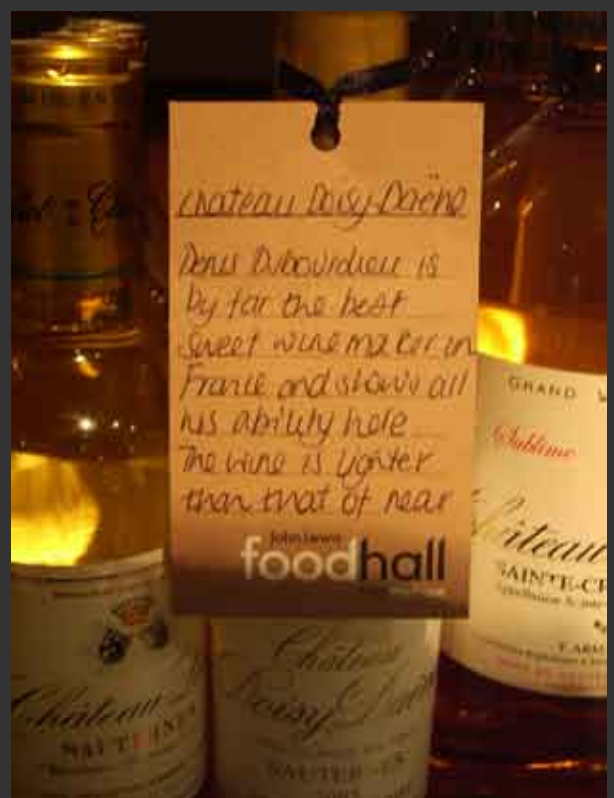 Chateau Doisy-Daëne
Denis Dubourdieu is
by far the best
sweet wine maker in
France and shows all
his ability here
The wine is lighter
than that of near
John Lewis
foodhall
GRAND
Sublime
Château
SAINTE-CR
Château
SAUTERNES
Château
Doisy Daëne
SAUTERNES